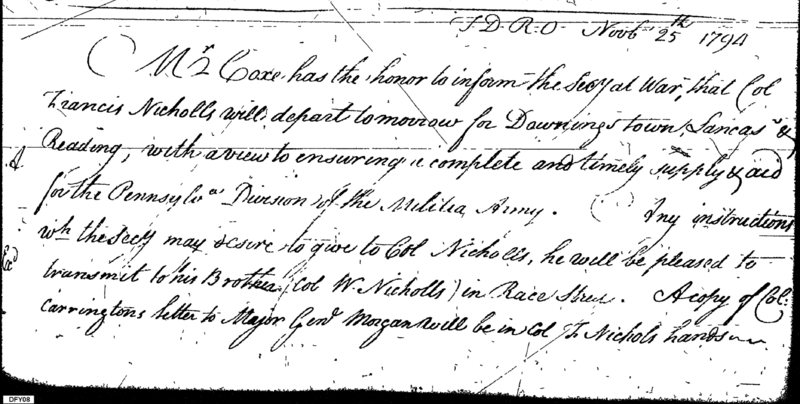 T.D.R.O. Novbr 25th 1794
Mr Coxe has the honor to inform the Secy at War, that Col
Francis Nicholls will depart tomorrow for Downings town, Lancasr &
Reading, with a view to ensuring a complete and timely supply & aid
for the Pennsylva Division of the Militia Army. Any instructions
wh the Secy may desire to give to Col Nicholls, he will be pleased to
transmit to his Brother (Col W. Nicholls) in Race Street. A copy of Col:
Carringtons letter to Major Genl Morgan will be in Col F. Nichols hands
DFY08